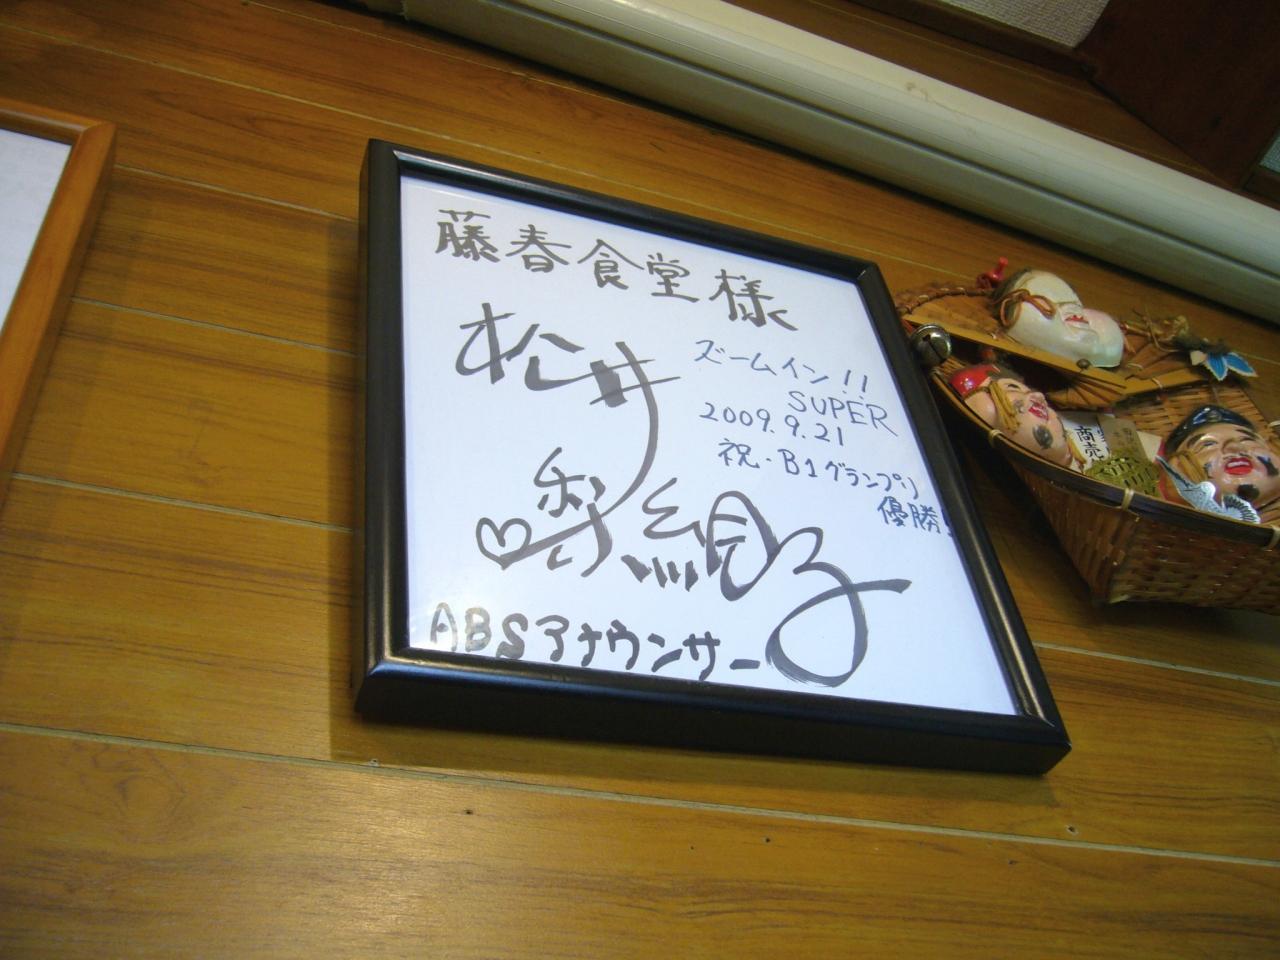 藤春食堂様
松井
梨絵子
ズームイン!!
SUPER
2009.9.21
祝・B1グランプリ
優勝!
ABSアナウンサー
商売